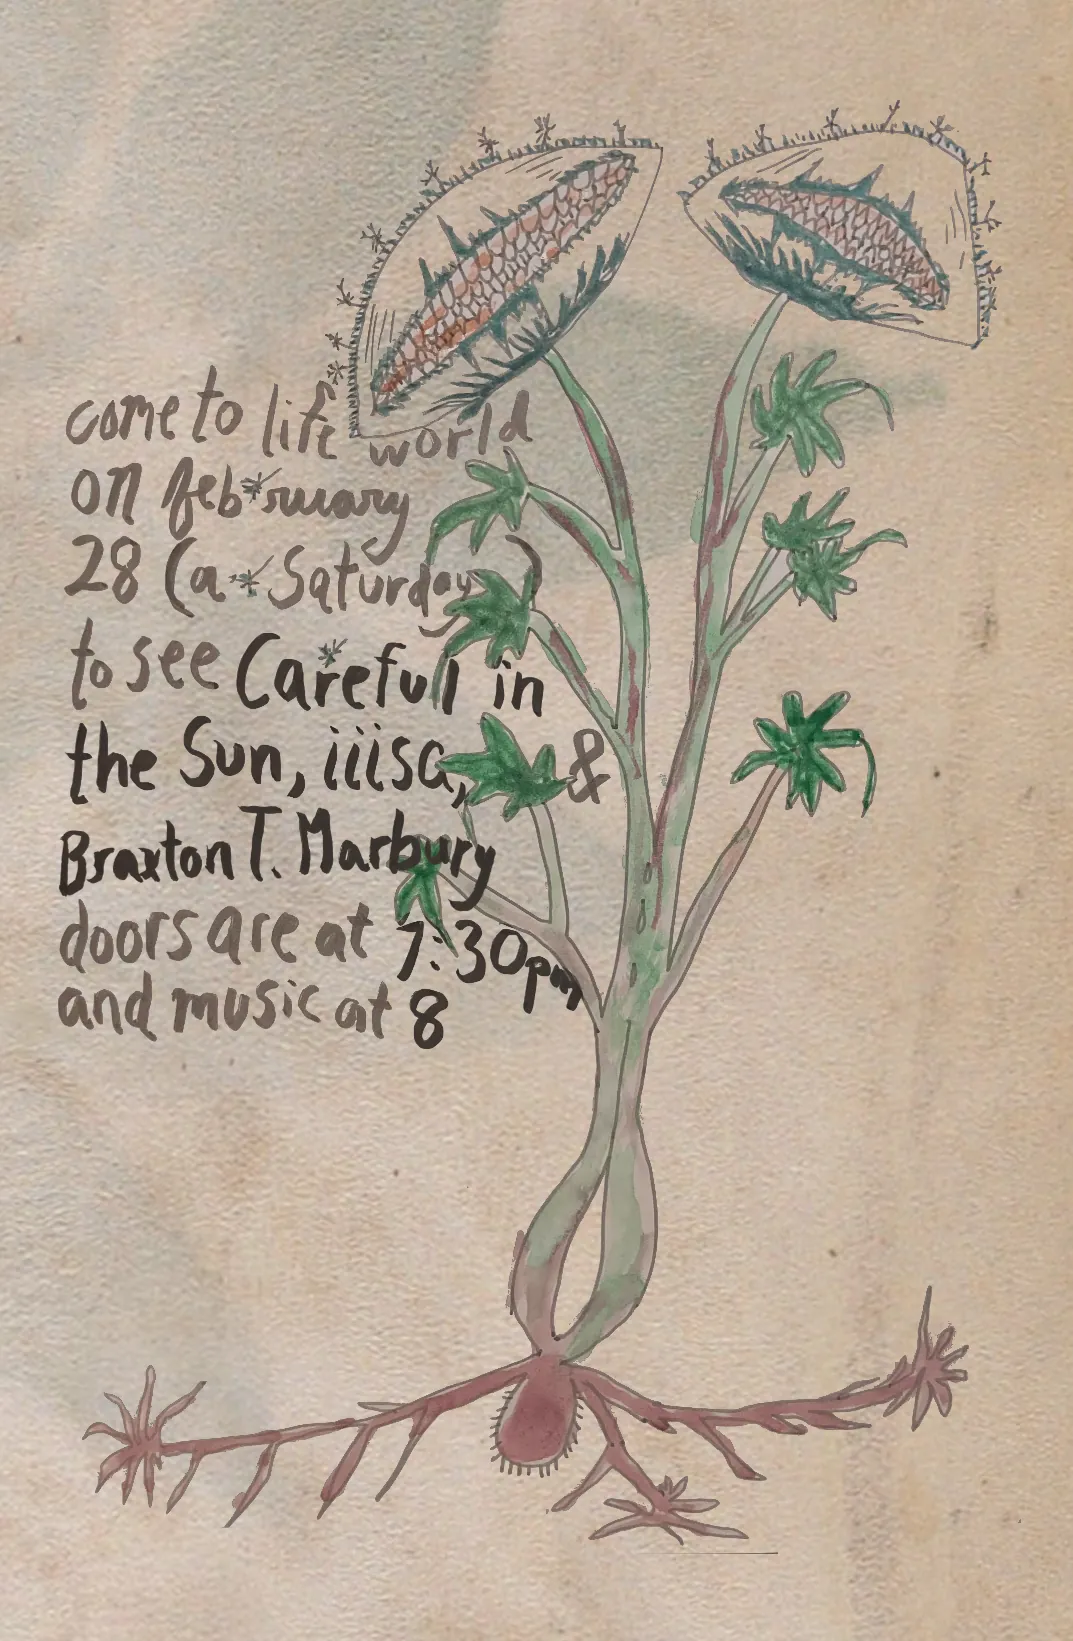 come to life world
on february
28 (a Saturday)
to see Careful in
the Sun, iiisa, &
Braxton T. Marbury
doors are at 7:30pm
and music at 8